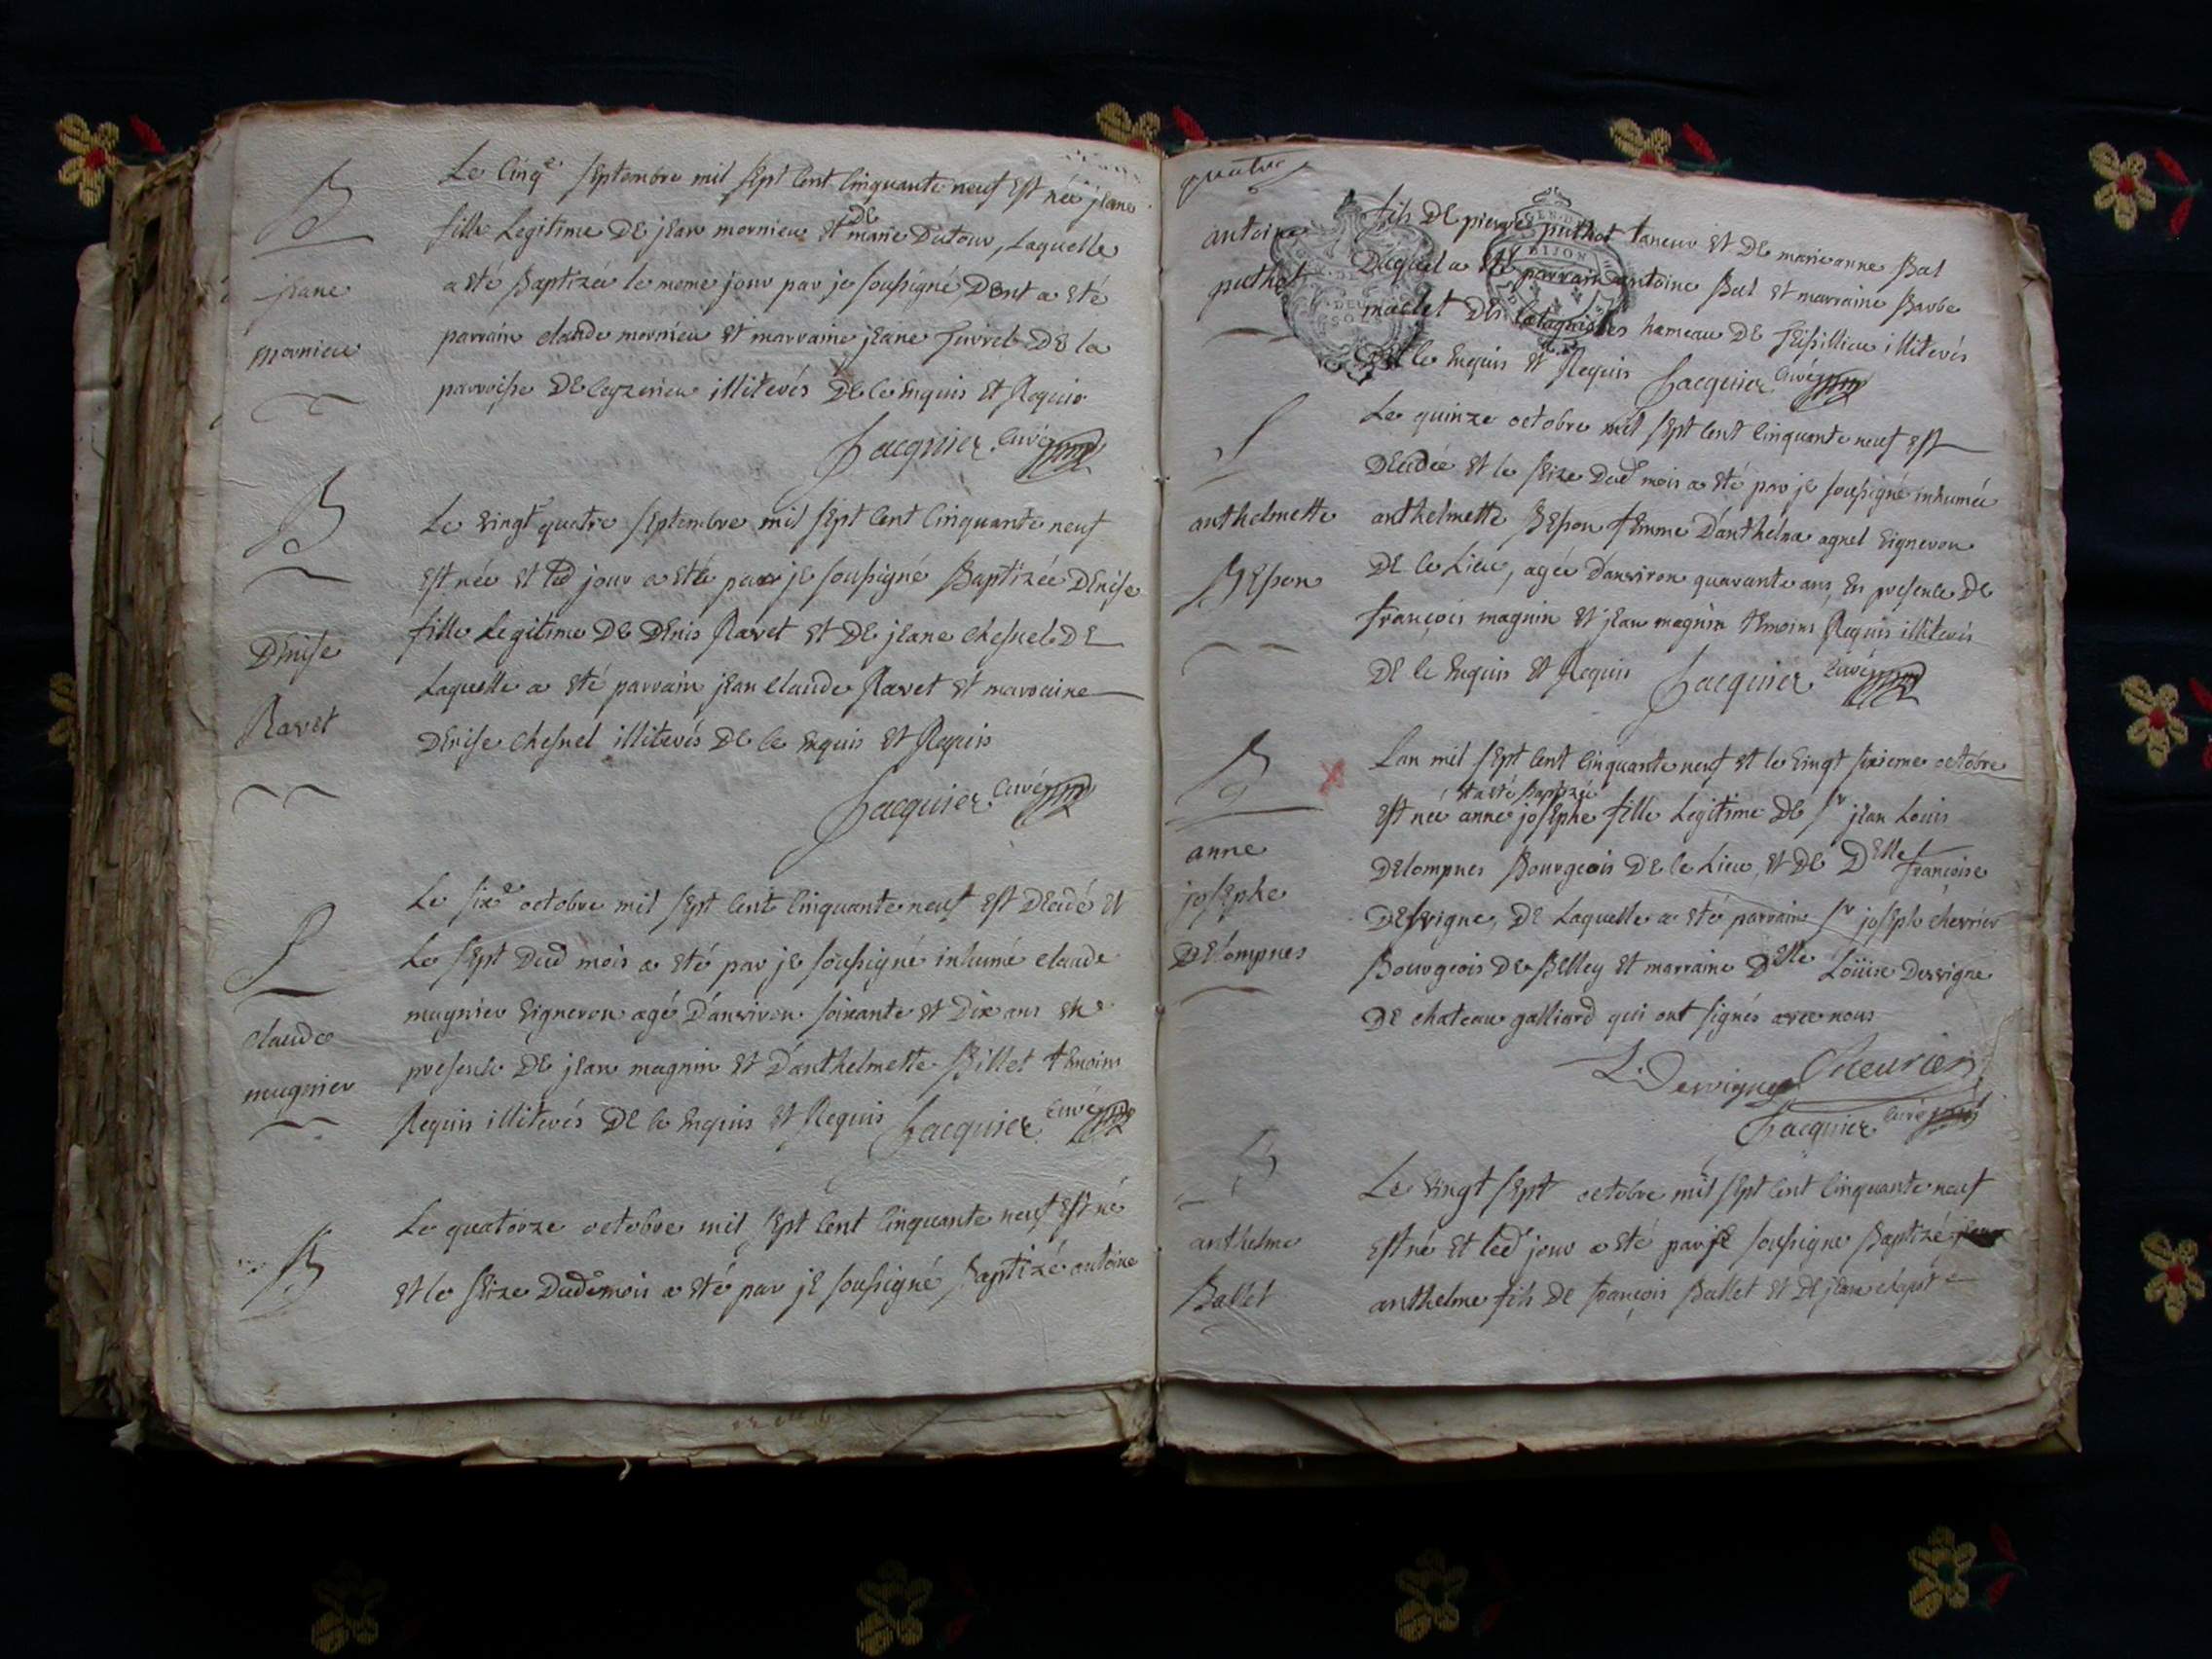 B
jeane
mornieu
Le cinq.e septembre mil sept cent cinquante neuf est née jeane
fille Legitime De jean mornieu et de marie Dutour, Laquelle
a eté Baptizée le meme jour par je soussigné Dont a eté
parrain claude mornieu et marraine jeane De la
parroisse De ceyzerieu illiterés De ce Enquis et Requis
Jacquier curé
B
Denise
Ravet
Le vingt quatre septembre mil sept cent cinquante neuf
est née et led jour a eté par je soussigné Baptizée Denise
fille Legitime De Denis Ravet et De jeane chesnel De
Laquelle a eté parrain jean claude Ravet et marraine
Denise chesnel illiterés De ce Enquis et Requis
Jacquier curé
S
claude
mugnier
Le six.e octobre mil sept cent cinquante neuf est Decedé et
Le sept Dud mois a eté par je soussigné inhumé claude
mugnier vigneron agé D'anviron soixante et Dix ans en
presence De jean magnin et D'anthelmette Billet temoins
Requis illiterés De ce Enquis et Requis Jacquier curé
B
Le quatorze octobre mil sept cent cinquante neuf est né
et le seize Dud mois a eté par je soussigné Baptizé antoine
quatre
antoine
puthet
fils De pierre puthet taneur et De marie anne Bal
Duquel a eté parrain antoine Bal et marraine Barbe
maclet Des hameau De illiterés
De ce Enquis et Requis Jacquier curé
GEN. DE
DEUX
SOLS
DIJON
S
anthelmette
Besson
Le quinze octobre mil sept cent cinquante neuf est
Decedée et le seize Dud mois a eté par je soussigné inhumée
anthelmette Besson femme D'anthelme agnel vigneron
De ce Lieu, agée D'anviron quarante ans, En presence De
françois magnin et jean magnin temoins Requis illiterés
De ce Enquis et Requis Jacquier curé
B
anne
josephe
Delompnes
Lan mil sept cent cinquante neuf et le vingt sixieme octobre
et a eté Baptizée
est née anne josephe fille Legitime De Sr jean Louis
Delompnes Bourgeois De ce Lieu, et De Delle françoise
Dervigne, De Laquelle a eté parrain Sr joseph chevrier
Bourgeois De Belley et marraine Delle Loüise Dervigne
De chateau galliard qui ont signés avec nous
L. Dervigney Cheurier
Jacquier curé
B
anthelme
Ballet
Le vingt sept octobre mil sept cent cinquante neuf
est né et led jour a eté par je soussigne Baptizé
anthelme fils De françois Ballet et De jeane